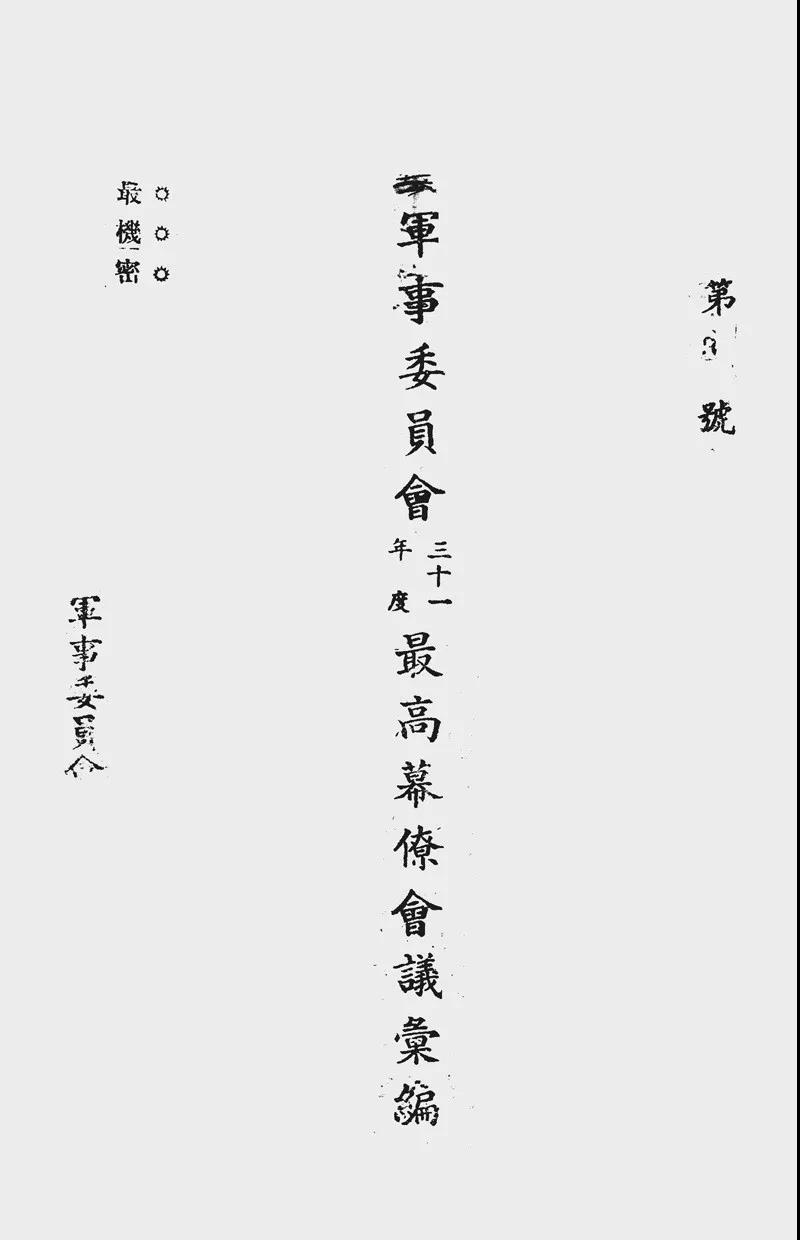 第 號
軍事委員會三十一年度最高幕僚會議彙編
最機密
軍事委員會